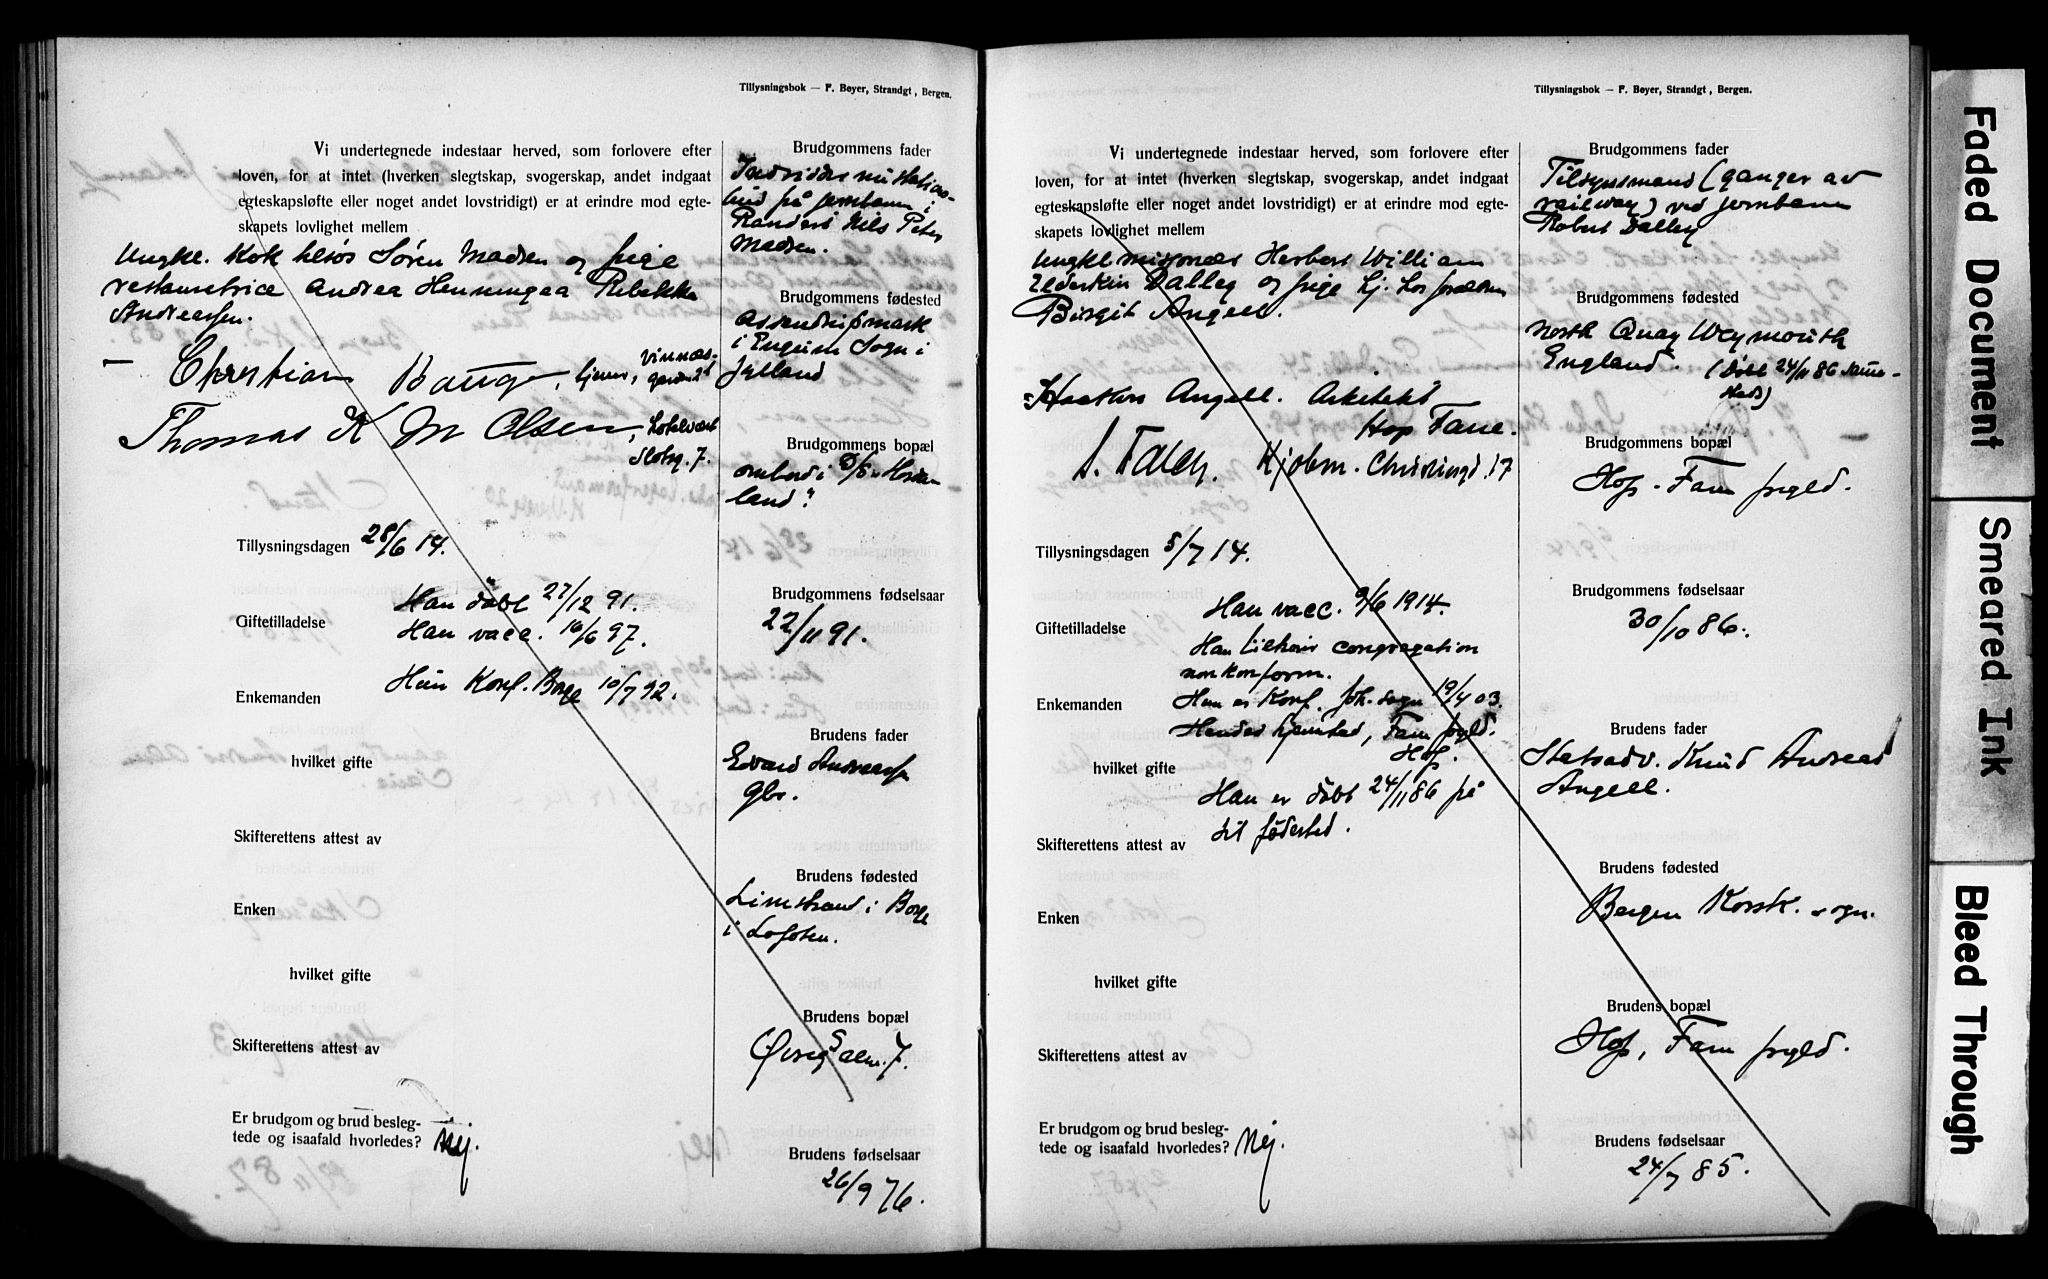 Tillysningsbok — F. Bøyer, Strandgt, Bergen.
Vi undertegnede indestaar herved, som forlovere efter
loven, for at intet (hverken slegtskap, svogerskap, andet indgaat
egteskapsløfte eller noget andet lovstridigt) er at erindre mod egte-
skapets lovlighet mellem
Ungkl. Kok Søren Madsen og pige
restauratrice Andrea Henningea Rebekka
Andreassen.
Christian Bauge,
Thomas K M Olsen,
Slotsg. 7.
Tillysningsdagen 28/6 14.
Han döbt 27/12 91.
Giftetilladelse
Han vacc. 16/6 97.
Hun Konf. Borge 10/7 92.
Enkemanden
hvilket gifte
Skifterettens attest av
Enken
hvilket gifte
Skifterettens attest av
Er brudgom og brud besleg-
tede og isaafald hvorledes? Nej.
Brudgommens fader
på jernbanen i
Randers Nils Peter
Madsen.
Brudgommens fødested
Assendrupmark
i Engum Sogn i
Jylland
Brudgommens bopæl
ombord i D/S "Horda
land"
Brudgommens fødselsaar
22/11 91.
Brudens fader
Edvard Andreassen
gbr.
Brudens fødested
Limstrand i Borge
i Lofoten.
Brudens bopæl
Øvreg alm. 7.
Brudens fødselsaar
26/9 76.
Tillysningsbok — F. Bøyer, Strandgt, Bergen.
Vi undertegnede indestaar herved, som forlovere efter
loven, for at intet (hverken slegtskap, svogerskap, andet indgaat
egteskapsløfte eller noget andet lovstridigt) er at erindre mod egte-
skapets lovlighet mellem
Ungkl. misjonær Herbert William
Elderkin Dalley og pige hj. hos forældrene
Birgit Angell.
Haakon Angell. Arkitekt
Hop Fane.
S. Falch. Kjøbm. Christiesgt. 17
Tillysningsdagen 5/7 14.
Han vacc. 9/6 1914.
Giftetilladelse
Han tilhører congregation
nonkonform.
Enkemanden
Hun er Konf. Joh. sogn 19/4 03.
Hendes hjemsted, Fane prgld.
Hop.
hvilket gifte
Han er döbt 24/11 86 på
sit födested.
Skifterettens attest av
Enken
hvilket gifte
Skifterettens attest av
Er brudgom og brud besleg-
tede og isaafald hvorledes? Nej.
Brudgommens fader
Tilsynsmand (ganger av
railway) ved jernbanen
Robert Dalley
Brudgommens fødested
North Quay Weymouth
England. (Döbt 24/11 86 samme-
steds)
Brudgommens bopæl
Hop. Fane prgld.
Brudgommens fødselsaar
30/10 86.
Brudens fader
Statsadv. Knud Andreas
Angell.
Brudens fødested
Bergen Korsk. sogn.
Brudens bopæl
Hop, Fane prgld.
Brudens fødselsaar
24/7 85.
Faded Document
Smeared Ink
Bleed Through